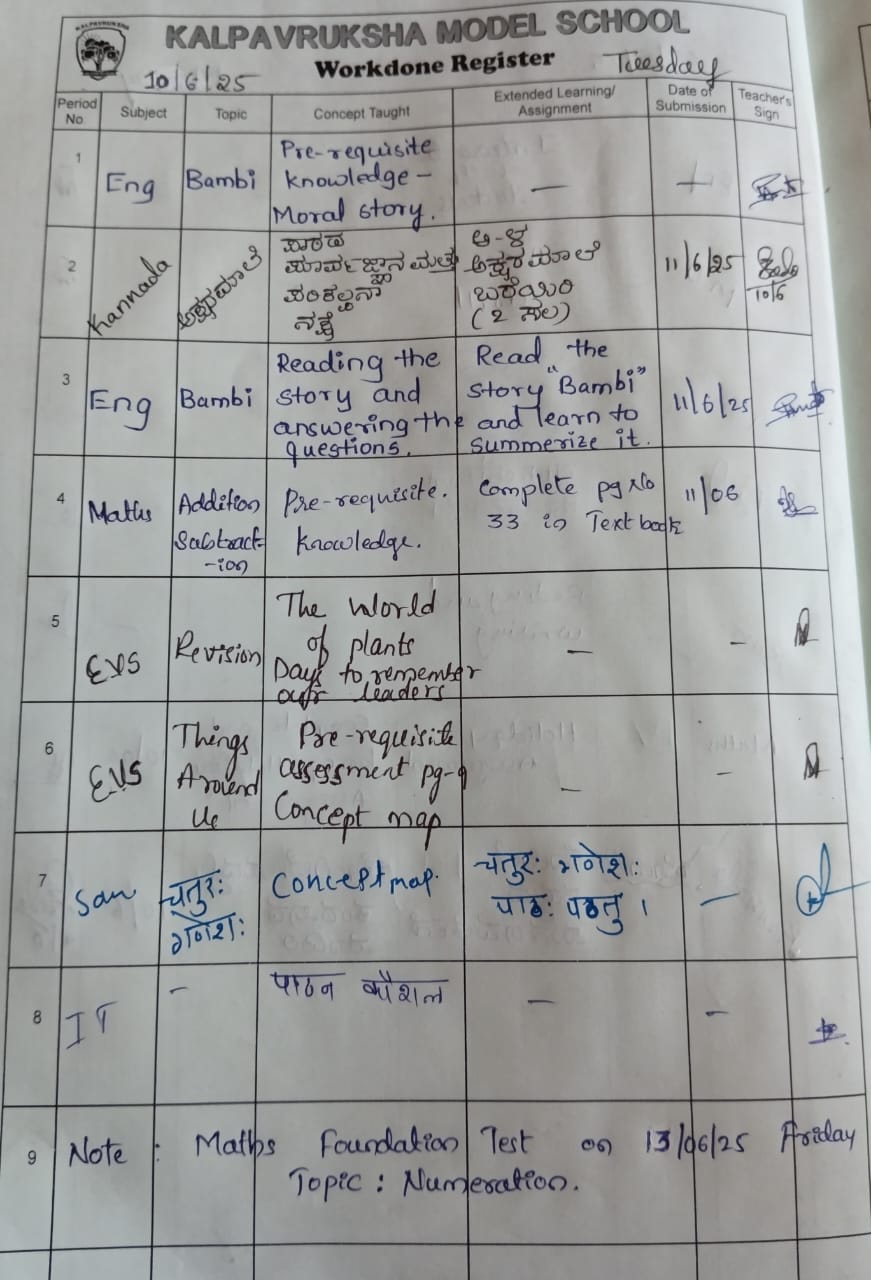 KALPAVRUKSHA MODEL SCHOOL
Workdone Register
10/6/25
Tuesday
Period No
Subject
Topic
Concept Taught
Extended Learning/ Assignment
Date of Submission
Teacher's Sign
1
Eng
Bambi
Pre-requisite
knowledge -
Moral story.
—
2
Kannada
ಅಕ್ಷರಮಾಲೆ
ಪಾಠದ
ಪೂರ್ವಜ್ಞಾನ ಮತ್ತು
ಪರಿಕಲ್ಪನಾ
ನಕ್ಷೆ
ಅ-ಳ
ಅಕ್ಷರಮಾಲೆ
ಬರೆಯಿರಿ
(2 ಸಲ)
11/6/25
10/6
3
Eng
Bambi
Reading the
story and
answering the
questions.
Read the
story "Bambi"
and learn to
summerize it.
11/6/25
4
Maths
Addition
Subtract-
-ion
Pre-requisite.
knowledge.
Complete pg No
33 in Text book
11/06
5
EVS
Revision
The World
of plants
Days to remember
our leaders
—
-
6
EVS
Things
Around
Us
Pre-requisite
assessment pg-9
Concept map
—
-
7
San
चतुरः
गणेशः
Concept map.
चतुरः गणेशः
पाठः पठतु ।
—
8
IT
-
पाठन कौशल
—
-
9
Note : Maths Foundation Test on 13/06/25 Friday
Topic : Numeration.